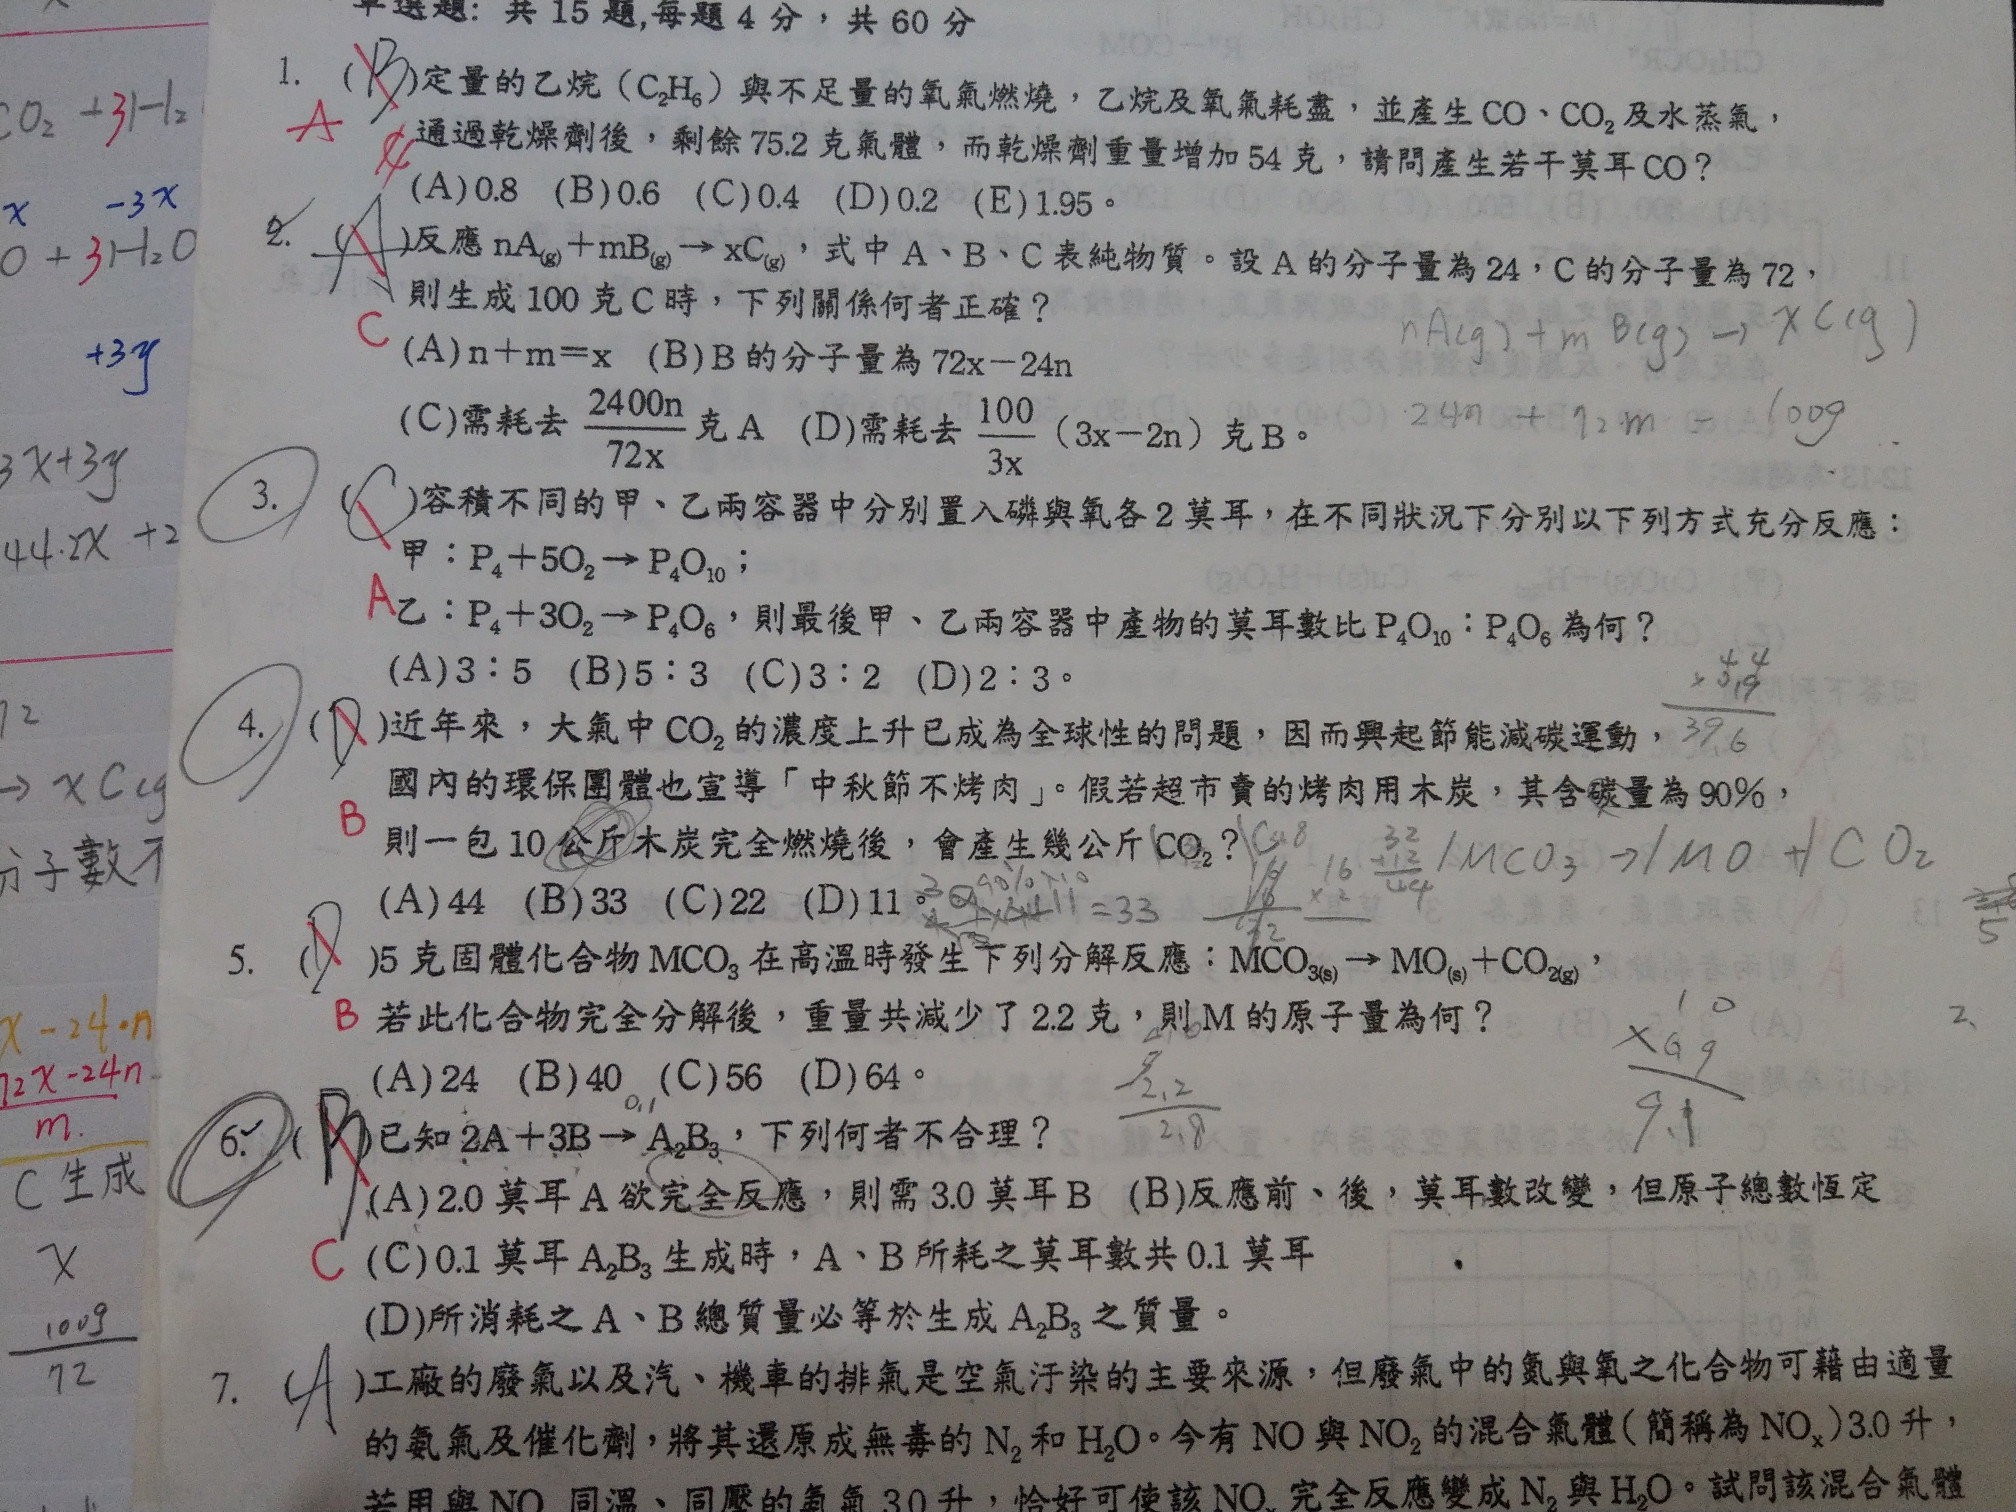 單選題: 共 15 題,每題 4 分，共 60 分
1. (B)定量的乙烷（C₂H₆）與不足量的氧氣燃燒，乙烷及氧氣耗盡，並產生 CO、CO₂ 及水蒸氣，
A
通過乾燥劑後，剩餘 75.2 克氣體，而乾燥劑重量增加 54 克，請問產生若干莫耳 CO？
(A)0.8 (B)0.6 (C)0.4 (D)0.2 (E)1.95。
2. (A)反應 nA(g)＋mB(g)→xC(g)，式中 A、B、C 表純物質。設 A 的分子量為 24，C 的分子量為 72，
則生成 100 克 C 時，下列關係何者正確？
C
nA(g)+mB(g)→xC(g)
(A)n＋m＝x (B)B 的分子量為 72x－24n
(C)需耗去 2400n/72x 克 A (D)需耗去 100/3x（3x－2n）克 B。
24n + 72m = 100g
3. (C)容積不同的甲、乙兩容器中分別置入磷與氧各 2 莫耳，在不同狀況下分別以下列方式充分反應：
甲：P₄＋5O₂→P₄O₁₀；
A
乙：P₄＋3O₂→P₄O₆，則最後甲、乙兩容器中產物的莫耳數比 P₄O₁₀：P₄O₆ 為何？
(A)3：5 (B)5：3 (C)3：2 (D)2：3。
4. (D)近年來，大氣中 CO₂ 的濃度上升已成為全球性的問題，因而興起節能減碳運動，
39.6
國內的環保團體也宣導「中秋節不烤肉」。假若超市賣的烤肉用木炭，其含碳量為 90%，
B
則一包 10 公斤木炭完全燃燒後，會產生幾公斤 CO₂？
1MCO₃→1MO+1CO₂
(A)44 (B)33 (C)22 (D)11。
=33
5. (D)5 克固體化合物 MCO₃ 在高溫時發生下列分解反應：MCO₃(s)→MO(s)＋CO₂(g)，
B
若此化合物完全分解後，重量共減少了 2.2 克，則 M 的原子量為何？
(A)24 (B)40 (C)56 (D)64。
2.2
2.8
10
9.1
2.
0.1
6. (B)已知 2A＋3B→A₂B₃，下列何者不合理？
(A)2.0 莫耳 A 欲完全反應，則需 3.0 莫耳 B (B)反應前、後，莫耳數改變，但原子總數恆定
C
(C)0.1 莫耳 A₂B₃ 生成時，A、B 所耗之莫耳數共 0.1 莫耳
(D)所消耗之 A、B 總質量必等於生成 A₂B₃ 之質量。
7. (A)工廠的廢氣以及汽、機車的排氣是空氣汙染的主要來源，但廢氣中的氮與氧之化合物可藉由適量
的氨氣及催化劑，將其還原成無毒的 N₂ 和 H₂O。今有 NO 與 NO₂ 的混合氣體(簡稱為 NOₓ)3.0 升，
若用與 NOₓ 同溫、同壓的氨氣 3.0 升，恰好可使該 NOₓ 完全反應變成 N₂ 與 H₂O。試問該混合氣體
CO₂ +3H₂
x -3x
O + 3H₂O
+3y
3x+3y
72
→ xC(g
分子數不
x-24·n
72x-24n
m.
C 生成
x
100g
72